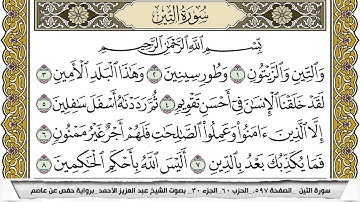 سورة التين
بِسْمِ اللَّهِ الرَّحْمَٰنِ الرَّحِيمِ
وَالتِّينِ وَالزَّيْتُونِ ١ وَطُورِ سِينِينَ ٢ وَهَٰذَا الْبَلَدِ الْأَمِينِ ٣
لَقَدْ خَلَقْنَا الْإِنسَٰنَ فِي أَحْسَنِ تَقْوِيمٍ ٤ ثُمَّ رَدَدْنَٰهُ أَسْفَلَ سَٰفِلِينَ ٥
إِلَّا الَّذِينَ ءَامَنُوا وَعَمِلُوا الصَّٰلِحَٰتِ فَلَهُمْ أَجْرٌ غَيْرُ مَمْنُونٍ ٦
فَمَا يُكَذِّبُكَ بَعْدُ بِالدِّينِ ٧ أَلَيْسَ اللَّهُ بِأَحْكَمِ الْحَٰكِمِينَ ٨
سورة التين _ الصفحة ٥٩٧_ الحزب ٦٠_ الجزء ٣٠_ بصوت الشيخ عبد العزيز الأحمد_ برواية حفص عن عاصم